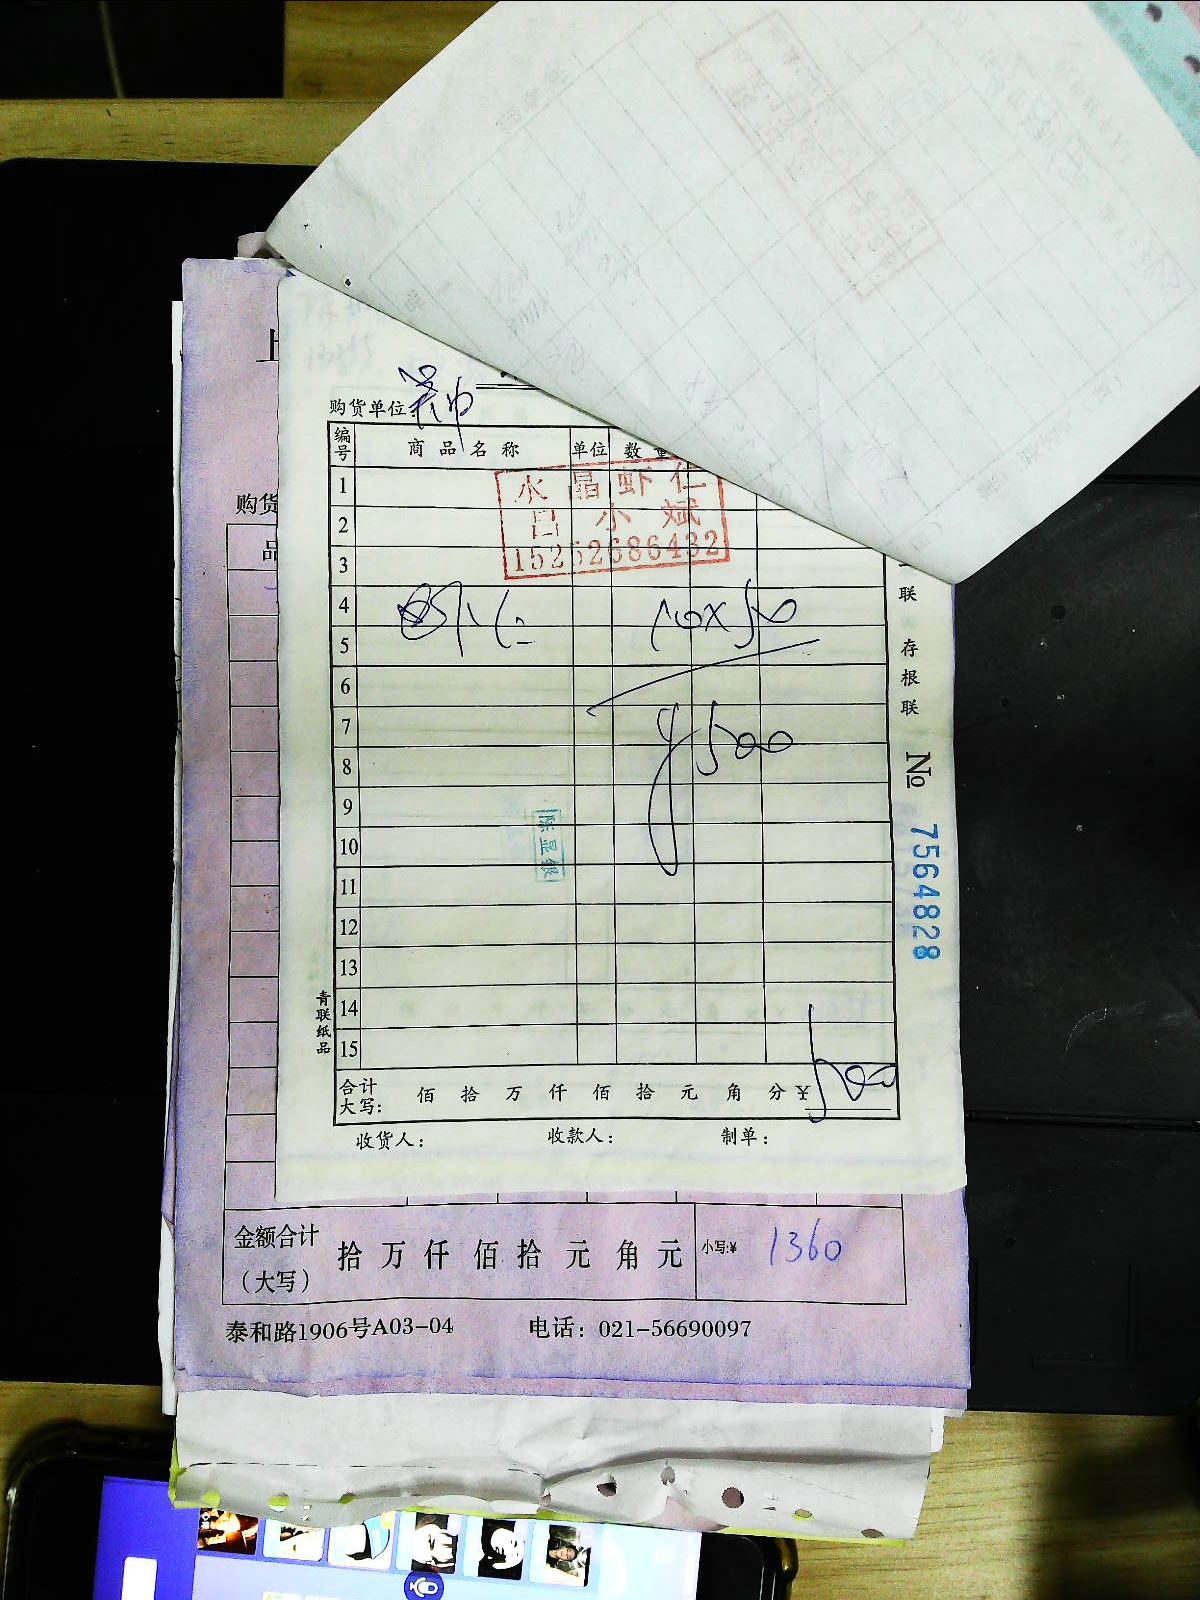 上
购货单位:
编号 商品名称 单位 数量
水晶虾仁
吕小斌
15252686432
1
2
3
4 虾仁 10×50
5
6
7 ¥500
8
9
10
11
12
13
14
15
陈显银
青联纸品
联 存根联
№ 7564828
合计大写: 佰 拾 万 仟 佰 拾 元 角 分 ¥ 500
收货人: 收款人: 制单:
购货
品
金额合计(大写) 拾 万 仟 佰 拾 元 角 元 小写:¥ 1360
泰和路1906号A03-04 电话:021-56690097